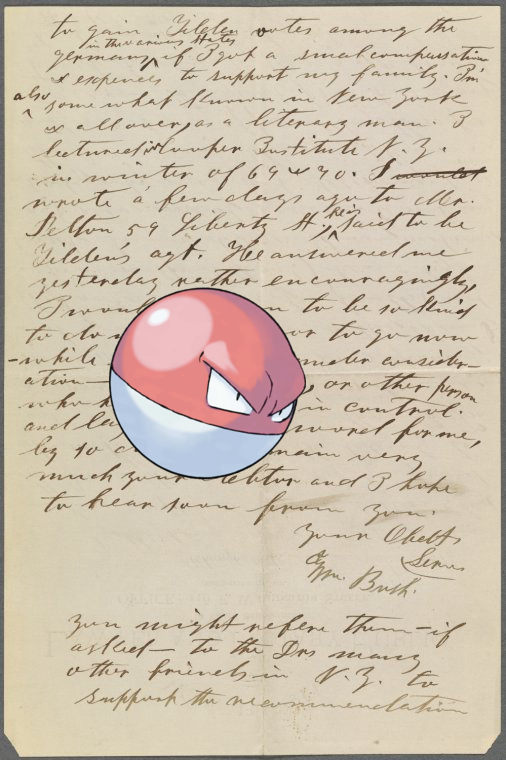 to gain Tilden votes among the
in the various States
germans, if I got a small compensation
& expences to support my family. I'm
also
somewhat known in New York
& all over, as a literary man. I
lectured in Cooper Institute N. Y.
in winter of 69 & 70. I would
wrote a few days ago to Mr.
Pelton 59 Liberty St, he is said to be
Tilden's agt. He answered me
yesterday rather encouragingly,
I would to be so kind
to do or to go now
-while under consider-
ation- , or other person
who in control
and word for me,
by so main very
much your debtor and I hope
to hear soon from you.
Your Obedt
Serv
Wm. Bush.
You might refere them - if
asked - to the Drs many
other friends in N. Y. to
support the recommendation